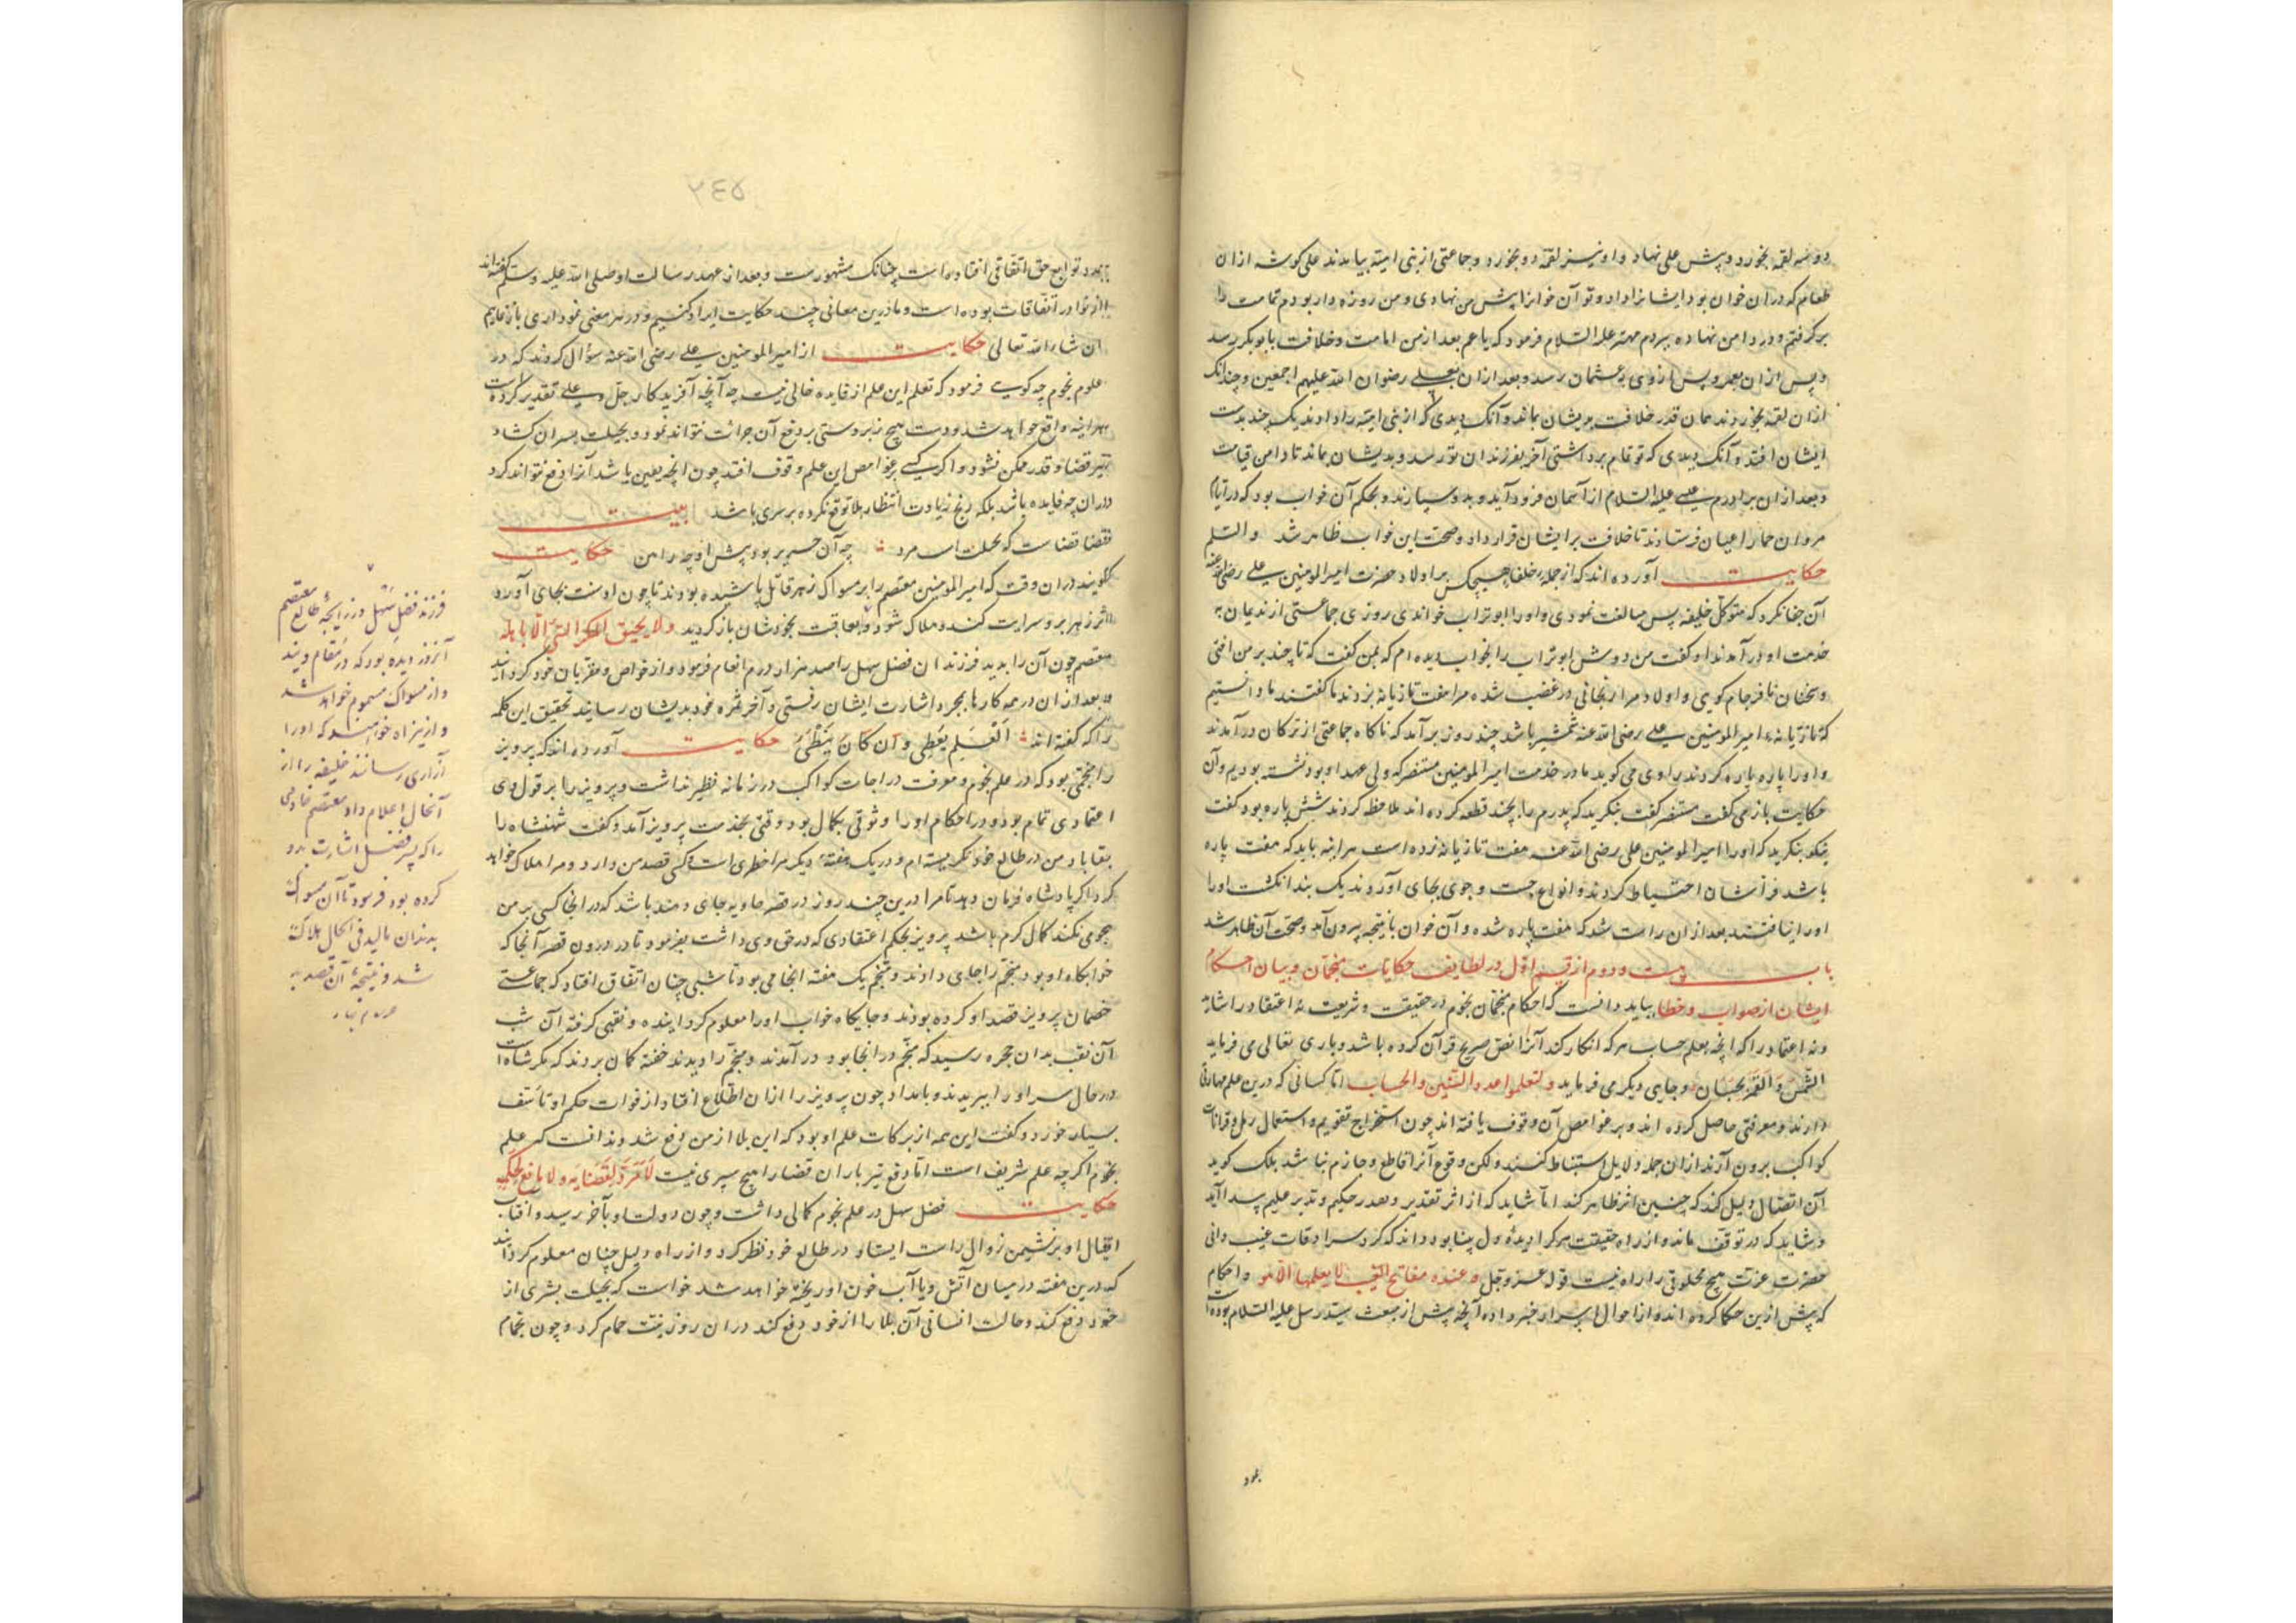 دو سه لقمه بخورد و پیش علی نهاد و او نیز لقمه دو بخورد و جماعتی از بنی امیه بیامدند علی گوشه ازان
طعام که دران خوان بود ایشانرا داد و تو آن خوانرا پیش من نهادی و من روزه دار بودم تمامت را
برگرفتم و در دامن نهاده ببردم مهتر علیه السلام فرمود که یا عم بعد از من امامت و خلافت بابوبکر رسد
و پس ازان بعمر و پس ازوی بعثمان رسد و بعد ازان بعلی رضوان الله علیهم اجمعین و چندانک
ازان لقمه بخوردند همان قدر خلافت بریشان بماند و آنک دیدی که از بنی امیه را دادند یک چند بدست
ایشان افتد و آنک دیدی که تو تمام برداشتی آخر بفرزندان تو رسد و بدیشان بماند تا دامن قیامت
و بعد ازان برادرم عیسی علیه السلام از آسمان فرود آید و بدو سپارند و بحکم آن خواب بود که در ایام
مروان حمار اعیان فرستادند تا خلافت بر ایشان قرار داد و صحت این خواب ظاهر شد والسلم
حکایت آورده اند که از جمله خلفا هیچکس بر اولاد حضرت امیرالمومنین علی رضی الله عنه
آن جفا نکرد که متوکل خلیفه پس مبالغت نمودی و او را ابوتراب خواندی روزی جماعتی از ندیمان به
خدمت او در آمدند او گفت من دوش ابوتراب را بخواب دیده ام که بمن گفت که تا چند بر من افتی
و سخنان نافرجام گویی و اولاد مرا برنجانی در غضب شده مرا هفت تازیانه بزدند ما گفتند ما دانستیم
که تازیانه امیرالمومنین علی رضی الله عنه شمشیر باشد چند روز برآمد که ناگاه جماعتی از ترکان درآمدند
و او را پاره پاره کردند راوی می گوید ما در خدمت امیرالمومنین منتصر که ولی عهد او بود نشسته بودیم و آن
حکایت باز می گفت منتصر گفت بنگرید که پدرم را بچند قطعه کرده اند ملاحظه کردند شش پاره بود گفت
نیکو بنگرید که او را امیرالمومنین علی رضی الله عنه هفت تازیانه زده است هر اینه باید که هفت پاره
باشد فراشان احتیاط کردند و انواع جست و جوی بجای آوردند یک بند انگشت او را
او را نیافتند بعد ازان راست شد که هفت پاره شده و آن خوان با نتیجه بیرون آمد و صحت آن ظاهر شد
باب بیست و دوم از قسم اول در لطایف حکایات منجمان و بیان احکام
ایشان از صواب و خطا بباید دانست که احکام منجمان نجوم در حقیقت و شریعت نه اعتقاد را شاید
و نه اعتماد را که آنچه بعلم حساب هرکه انکار کند آنرا نص صریح قرآن کرده باشد و باری تعالی می فرماید
الشمس والقمر بحسبان و جایی دیگر می فرماید ولتعلموا عدد السنین والحساب اما کسانی که درین علم مهارتی
دارند و معرفتی حاصل کرده اند و بر غوامص آن وقوف یافته اند چون استخراج تقویم و استعمال رمل و قرانات
کواکب بیرون آرند ازان جمله دلایل استنباط کنند ولکن وقوع آنرا قاطع و جازم نباشد بلک گوید
آن اتصال دلیل کند که چنین اثر ظاهر کند اما شاید که آن اثر تقدیر و بعد در حکیم و تدبیر علیم پیدا آید
و شاید که در توقف ماند و از راه حقیقت هرکرا دیده دل بینا بود داند که گرد سرادقات غیب دانی
حضرت عزت هیچ مخلوقی را راه نیست قوله عز و جل و عنده مفاتح الغیب لا یعلمها الا هو و احکام
که پیش ازین حکما کرده اند و از احوال اسرار خبر داده آنچه پیش از مبعث سید رسل علیه السلام بوده است
بعرد
۵۴۲
توابع حق اتفاقی افتاده است چنانک مشهورست و بعد از عهد رسالت او صلی الله علیه وسلم گفته اند
از نوادر اتفاقات بوده است و ما درین معانی چند حکایت ایراد کنیم و در هر معنی نموداری باز نماییم
ان شاء الله تعالی حکایت از امیرالمومنین علی رضی الله عنه سؤال کردند که در
علوم نجوم چه گویی فرمود که تعلم این علم از فایده خالی نیست چه آنچه آفریدگار جل و علی تقدیر کرده است
هر اینه واقع خواهد شد و دست هیچ زبردستی بر دفع آن جرائت نتواند نمود و بحیلت بسران کشاد
تغیر قضا و قدر ممکن نشود و اگر کسی بر غوامص این علم وقوف افتد چون آنچه یعین باشد آنرا دفع نتواند کرد
دران چه فایده باشد بلکه رنج زیادت انتظار بلا توقع نکرده بر سری باشد بیت
قضا قضاست که بحیلت مرد چه آن حریر بود پیش او چه رامن حکایت
گویند دران وقت که امیرالمومنین معتصم را بر مسواک زهر قاتل پاشیده بودند تا چون او سنت بجای آورد
اثر زهر برو سرایت کند و هلاک شود و عاقبت بخودشان باز گردید ولا یحیق المکر السیئ الا باهله
معتصم چون آن را بدید فرزندان فضل سهل را صد هزار درم انعام فرمود و از خواص و مقربان خود گردانید
و بعد ازان در همه کارها بمجرد اشارت ایشان رفتی و آخر ثمره خود بدیشان رسانید تحقیق این کلمه
را که گفته اند العلم یعطی و ان کان یبطئ حکایت آورده اند که پرویز
را منجمی بود که در علم نجوم و معرفت دراجات کواکب در زمانه نظیر نداشت و پرویز را بر قول وی
اعتمادی تمام بود و در احکام او را وثوقی بکمال بود وقتی بخدمت پرویز آمد و گفت شهنشاه را
بقا باد من در طالع خود نگریسته ام و در یک هفته دیگر مرا خطری است و کسی قصد من دارد و مرا هلاک خواهد
کرد اگر پادشاه فرمان دهد تا مرا درین چند روز در قصر حاویه جای دهند باشد که در انجا کسی بر من
هجومی نکند کمال کرم باشد پرویز بحکم اعتقادی که در حق وی داشت بفرمود تا در درون قصر آنجا که
خوابگاه او بود منجم را جای دادند و منجم یک هفته انجا می بود تا شبی چنان اتفاق افتاد که جماعتی
خصمان پرویز قصد او کرده بودند و جایگاه خواب او را معلوم گردانیده و نقبی گرفته آن شب
آن نقب بدان حجره رسید که منجم در انجا بود در آمدند و منجم را دیدند خفته گمان بردند که مگر شاه است
در حال سر او را ببریدند و بامداد چون پرویز را ازان اطلاع افتاد از فوات حکم او تأسف
بسیار خورد و گفت این همه از برکات علم او بود که این بلا از من دفع شد و ندانست که علم
نجوم اگرچه علم شریف است اما دفع تیر باران قضا را هیچ سپری نیست لا مرد لقضایه ولا مانع لحکمه
حکایت فضل سهل در علم نجوم کمالی داشت و چون دولت او بآخر رسید و آفتاب
اقبال او بر نشیمن زوال راست ایستاد در طالع خود نظر کرد و از راه دلیل چنان معلوم گردانید
که درین هفته در میان آتش و یا آب خون او ریخته خواهد شد خواست که بحیلت بشری از
خود دفع کند و حالت انسانی آن بلا را از خود دفع کند دران روز نیت حمام کرد و چون بحمام
فرزند فضل سهل در زایجه طالع معتصم
آنروز دیده بود که در مقام ویند
و از مسواک مسموم خواهد شد
و ازین راه خواهند که او را
آزاری رسانند خلیفه را از
آنحال اعلام داد معتصم خادمی
را که پسر فضل اشارت بدو
کرده بود فرمود تا آن مسواک
بدندان مالید فی الحال هلاک
شد و نتیجه آن قصد به